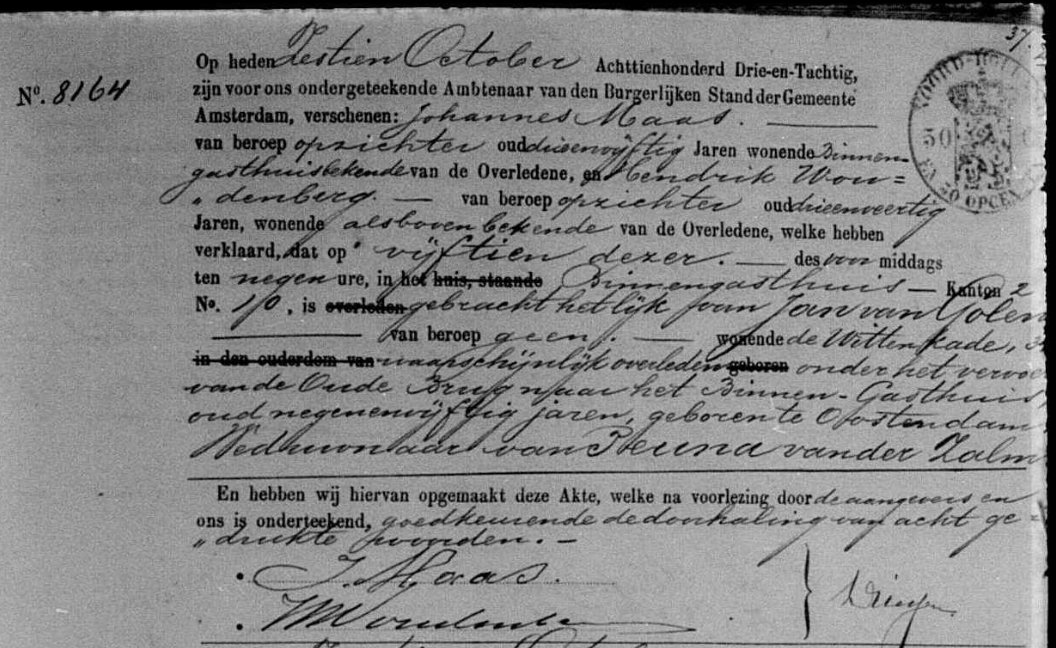 Nº. 8164
Op heden Zestien October Achttienhonderd Drie-en-Tachtig,
zijn voor ons ondergeteekende Ambtenaar van den Burgerlijken Stand der Gemeente
Amsterdam, verschenen: Johannes Maas.
van beroep opzichter oud drieenvijftig Jaren wonende Binnen-
gasthuis bekende van de Overledene, en Hendrik Wou=
„denberg. — van beroep opzichter oud drieenveertig
Jaren, wonende alsboven bekende van de Overledene, welke hebben
verklaard, dat op vijftien dezer. — des voor middags
ten negen ure, in het huis, staande Binnengasthuis — Kanton 2
No. 10, is overleden gebracht het lijk van Jan van Golen
van beroep geen. — wonende de Wittenkade,
in den ouderdom van waarschijnlijk overleden geboren onder het vervoer
van de Oude Brug naar het Binnen-Gasthuis,
oud negenenvijftig jaren, geboren te Oostendam
Weduwnaar van Teuna van der Zalm
En hebben wij hiervan opgemaakt deze Akte, welke na voorlezing door de aangevers en
ons is onderteekend, goedkeurende de doorhaling van acht ge=
„drukte woorden. —
J. Maas.
NOORD-HOLL
50
EN 50 OPCEN